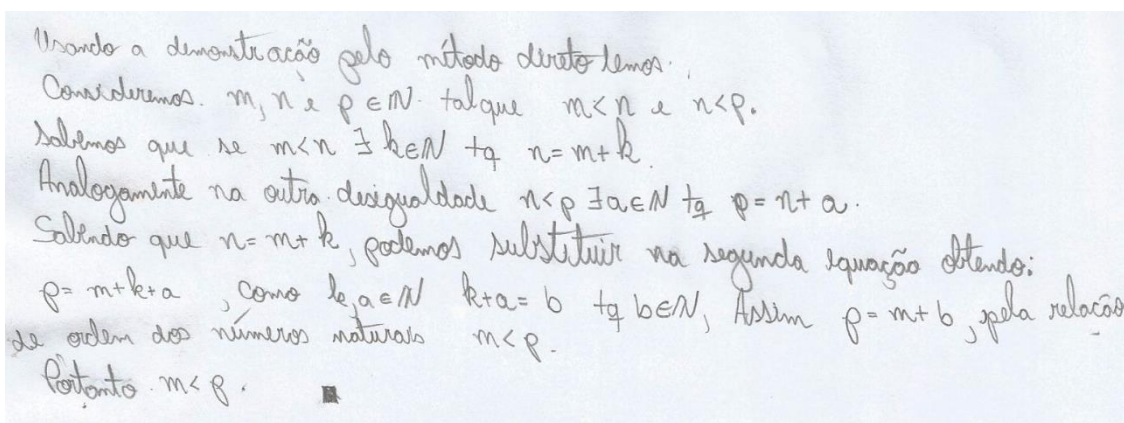 Usando a demonstração pelo método direto temos.
Consideremos. m, n e p ∈ ℕ. tal que m<n e n<p.
Sabemos que se m<n ∃ k∈ℕ tq n=m+k.
Analogamente na outra desigualdade n<p ∃ a∈ℕ tq p=n+a.
Sabendo que n=m+k, podemos substituir na segunda equação obtendo:
p=m+k+a, como k,a∈ℕ k+a=b tq b∈ℕ, Assim p=m+b, pela relação
de ordem dos números naturais m<p.
Portanto m<p. ■